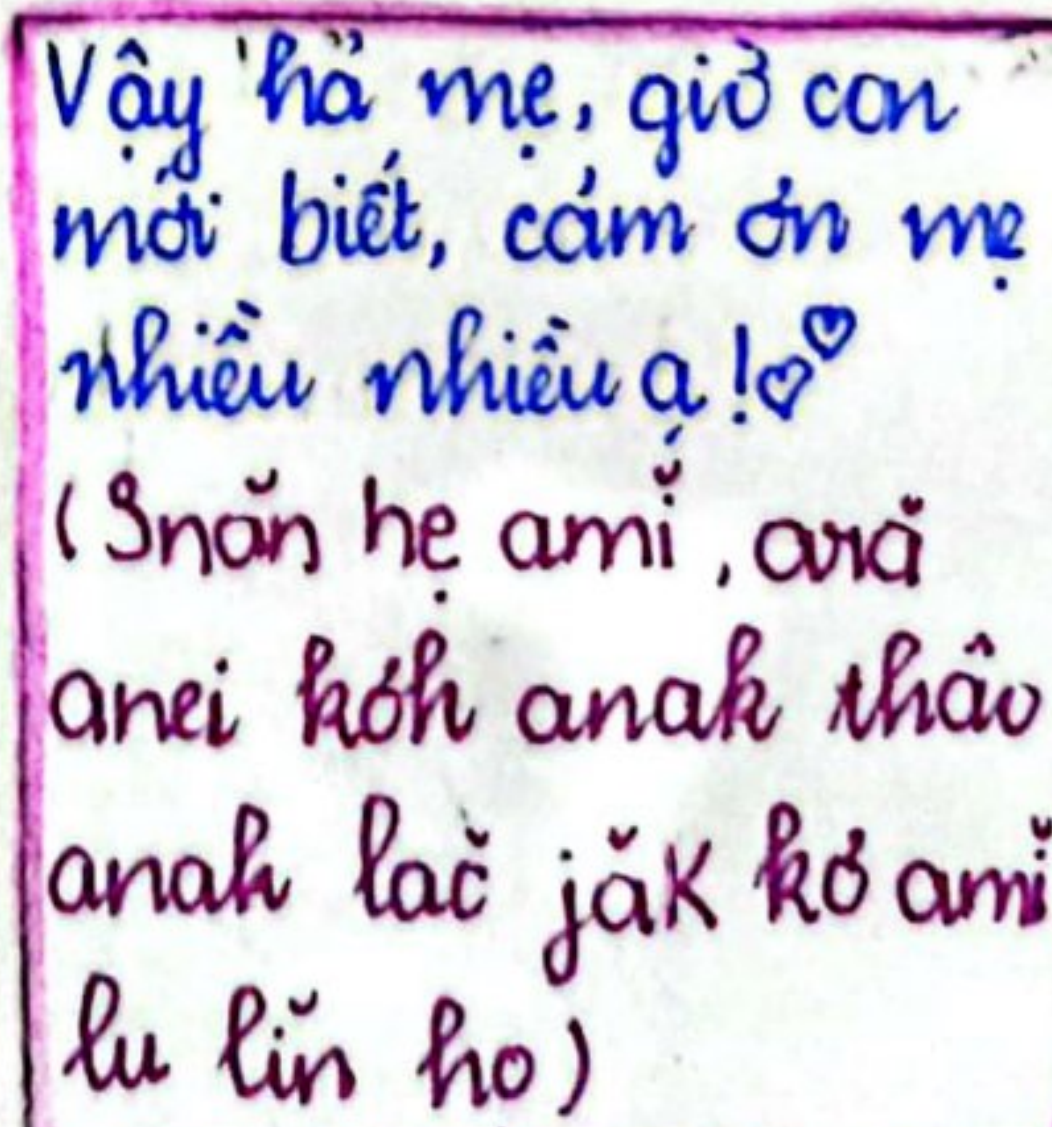 Vậy hả mẹ, giờ con
mới biết, cám ơn mẹ
nhiều nhiều ạ!
(Snăn hẹ amĭ, ară
anei kơh anak thâo
anak lač jăk kơ amĭ
lu lĭn ho)